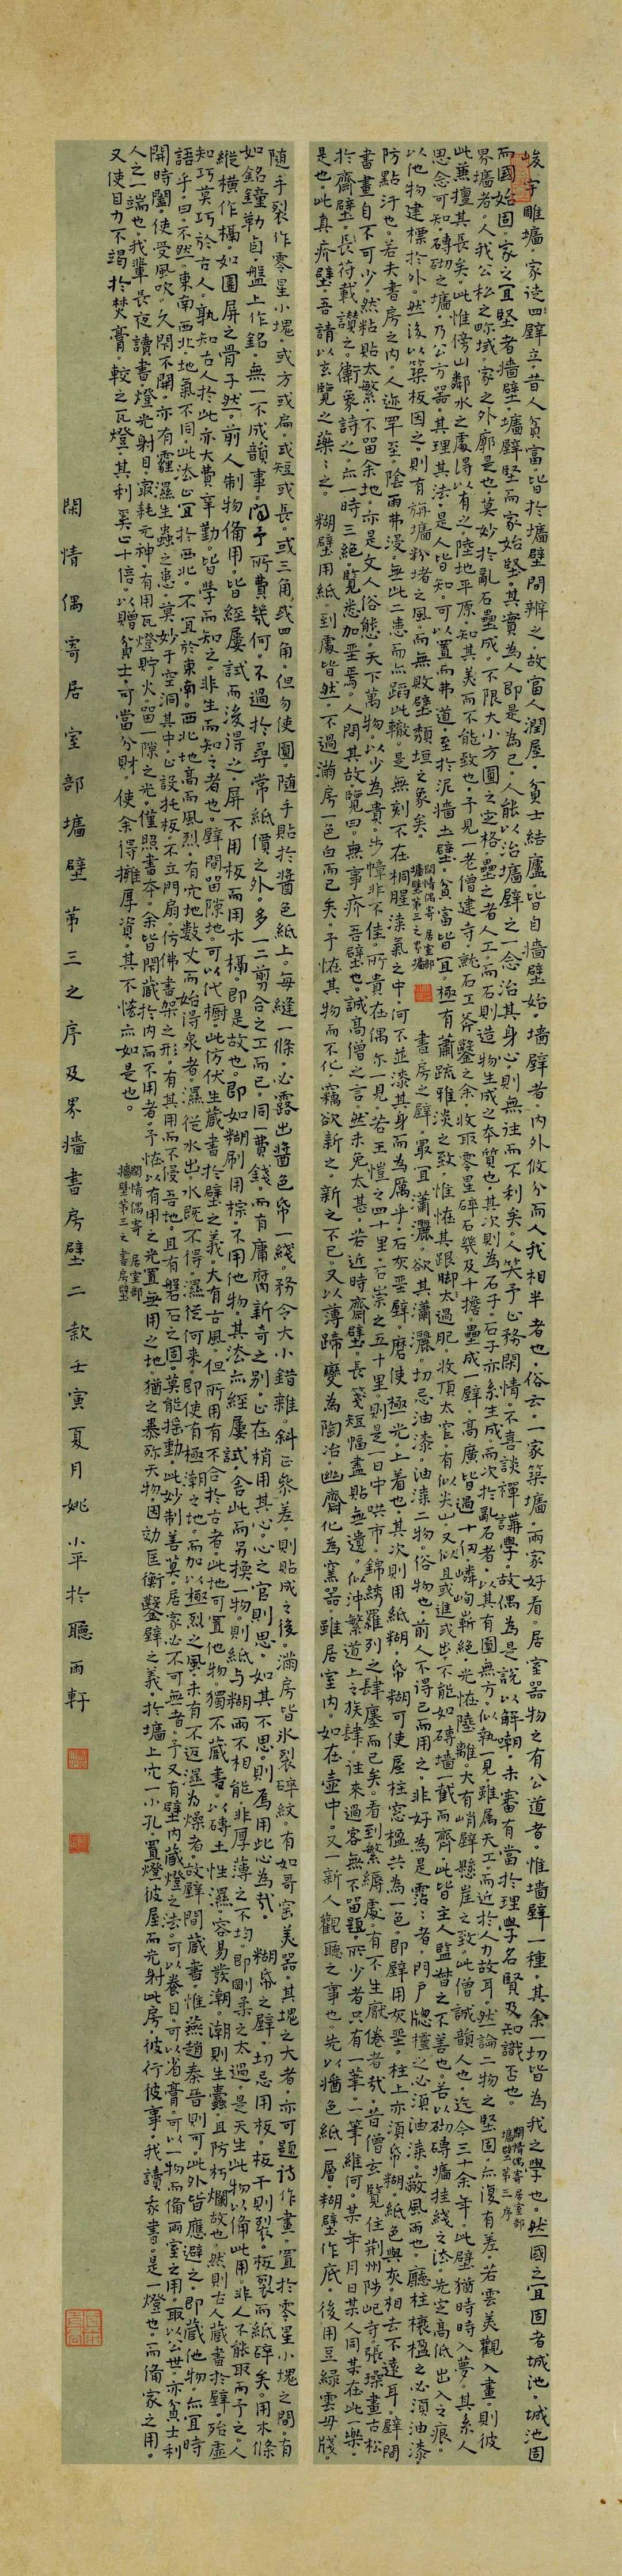 峻宇雕墻。家徒四壁立。昔人貧富。皆於墻壁間辨之。故富人潤屋。貧士結廬。皆自墻壁始。墻壁者。內外攸分而人我相半者也。俗云。一家築墻。兩家好看。居室器物之有公道者。惟墻壁一種。其余一切皆為我之學也。然國之宜固者城池。城池固
而國始固。家之宜堅者墻壁。墻壁堅而家始堅。其實為人即是為己。人能以治墻壁之一念治其身心。則無往而不利矣。人笑予止務閑情。不喜談禪講學。故偶為是說以解嘲。未審有當於理學名賢及知識否也。
閑情偶寄居室部
墻壁第三序
界墻者。人我公私之畛域。家之外廓是也。莫妙於亂石壘成。不限大小方圓之定格。壘之者人工。而石則造物生成之本質也。其次則為石子。石子亦系生成。而次於亂石者。以其有圓無方。似執一見。雖属天工。而近於人力故耳。然論二物之堅固。亦復有差。若雲美觀入畫。則彼
此兼擅其長矣。此惟傍山鄰水之處得以有之。陸地平原。知其美而不能致也。予見一老僧建寺。就石工斧鑿之余。收取零星碎石幾及千擔。壘成一壁。高廣皆過十仞。嶙峋嶄絕。光怪陸離。大有峭壁懸崖之致。此僧誠韻人也。迄今三十余年。此壁猶時時入夢。其系人
思念可知。磚砌之墻。乃公方器。其理其法。是人皆知。可以置而弗道。至於泥墻土壁。貧富皆宜。極有蕭疏雅淡之致。惟怪其跟腳太過肥。收頂太窄。有似尖山。又似且或進或出。不能如磚墻一截而齊。此皆主人監督之不善也。若以砌磚墻挂綫之法。先定高低出入之痕。
以他物建標於外。然後以築板因之。則有旃墻粉堵之風。而無敗壁頹垣之象矣。
閑情偶寄居室部
墻壁第三之界墻
書房之壁。最宜瀟灑。欲其瀟灑。切忌油漆。油漆二物。俗物也。前人不得已而用之。非好為是霑々者。門戶牕櫺之必須油漆。蔽風雨也。廳柱榱楹之必須油漆。
防點汙也。若夫書房之內。人迹罕至。陰雨弗浸。無此二患而亦蹈此轍。是無刻不在桐腥漆氣之中。何不並漆其身而為厲乎。石灰堊壁。磨使極光。上着也。其次則用紙糊。帋糊可使屋柱窓楹共為一色。即壁用灰堊。柱上亦須帋糊。紙色與灰。相去不遠耳。壁間
書畫自不可少。然粘貼太繁。不留余地。亦是文人俗態。天下萬物。以少為貴。步幛非不佳。所貴在偶尔一見。若王愷之四十里。石崇之五十里。則是一日中哄市。錦綉羅列之肆廛而已矣。看到繁縟處。有不生厭倦者哉。昔僧玄覽住荊州陟屺寺。張璪畫古松
於齋壁。符載讚之。衛象詩之。亦一時三絕。覽悉加堊焉。人問其故。覽曰。無事疥吾壁也。誠高僧之言。然未免太甚。若近時齋壁。長箋短幅盡貼無遺。似沖繁道上之旅肆。往來過客無不留題。所少者只有一筆。一筆維何。某年月日某人同某在此一樂。
是也。此真疥壁。吾請以玄覽之藥々之。糊壁用紙。到處皆然。不過滿房一色白而已矣。予怪其物而不化。竊欲新之。新之不已。又以薄蹄變為陶冶。幽齋化為窯器。雖居室內。如在壺中。又一新人觀聽之事也。先以醬色紙一層。糊壁作底。後用豆綠雲母牋。
隨手裂作零星小塊。或方或扁。或短或長。或三角或四角。但勿使圓。隨手貼於醬色紙上。每縫一條。必露出醬色帋一綫。務令大小錯雜。斜正參差。則貼成之後。滿房皆氷裂碎紋。有如哥窑美器。其塊之大者。亦可題詩作畫。置於零星小塊之間。有
如銘鐘勒卣。盤上作銘。無一不成韻事。問予所費幾何。不過於尋常紙價之外。多一二剪合之工而已。同一費錢。而有庸腐新奇之別。止在稍用其心。心之官則思。如其不思。則焉用此心為哉。糊帋之壁。切忌用板。板干則裂。板裂而紙碎矣。用木條
縱橫作槅。如圍屏之骨子然。前人制物備用。皆經屢試而後得之。屏不用板而用木槅。即是故也。即如糊刷用棕。不用他物。其法亦經屢試。舍此而另換一物。則紙与糊兩不相能。非厚薄之不均。即剛柔之太過。是天生此物以備此用。非人不能取而予之。人
知巧莫巧於古人。孰知古人於此亦大費辛勤。皆學而知之。非生而知之者也。壁間留隙地。可以代櫥。此仿伏生藏書於壁之義。大有古風。但所用有不合於古者。此地可置他物。獨不藏書。以磚土性濕。容易發潮。潮則生蠹。且防朽爛故也。然則古人藏書於壁。殆虛
語乎。曰。不然。東南西北。地氣不同。此法止宜於西北。不宜於東南。西北地高而風烈。有穴地数丈而始得泉者。濕從水出。水既不得。濕從何來。即使有極潮之地。而加以極烈之風。未有不返濕為燥者。故壁間藏書。惟燕趙秦晉則可。此外皆應避之。即藏他物。亦宜時
開時闔。使受風吹。久閉不開。亦有霾濕生蟲之患。莫妙于空洞其中。止設托板。不立門扇。仿佛書架之形。有其用而不侵吾地。且有磐石之固。莫能摇動。此妙制善算。居家必不可無者。予又有壁內藏燈之法。可以養目。可以省膏。可以一物而備兩室之用。取以公世。亦貧士利
人之一端也。我輩長夜讀書。燈光射目。最耗元神。有用瓦燈貯火。留一隙之光。僅照書本。余皆閑藏於內而不用者。予怪以有用之光置無用之地。猶之暴殄天物。因効匡衡鑿壁之義。於墻上穴一小孔。置燈彼屋而光射此房。彼行彼事。我讀我書。是一燈也。而備家之用。
又使目力不竭於焚膏。較之瓦燈。其利奚止十倍。以贈貧士。可當分財。使余得擁厚資。其不悋亦如是也。
閑情偶寄居室部
墻壁第三之書房壁
閑情偶寄居室部墻壁第三之序及界墻書房壁二款壬寅夏月姚小平於聽雨軒